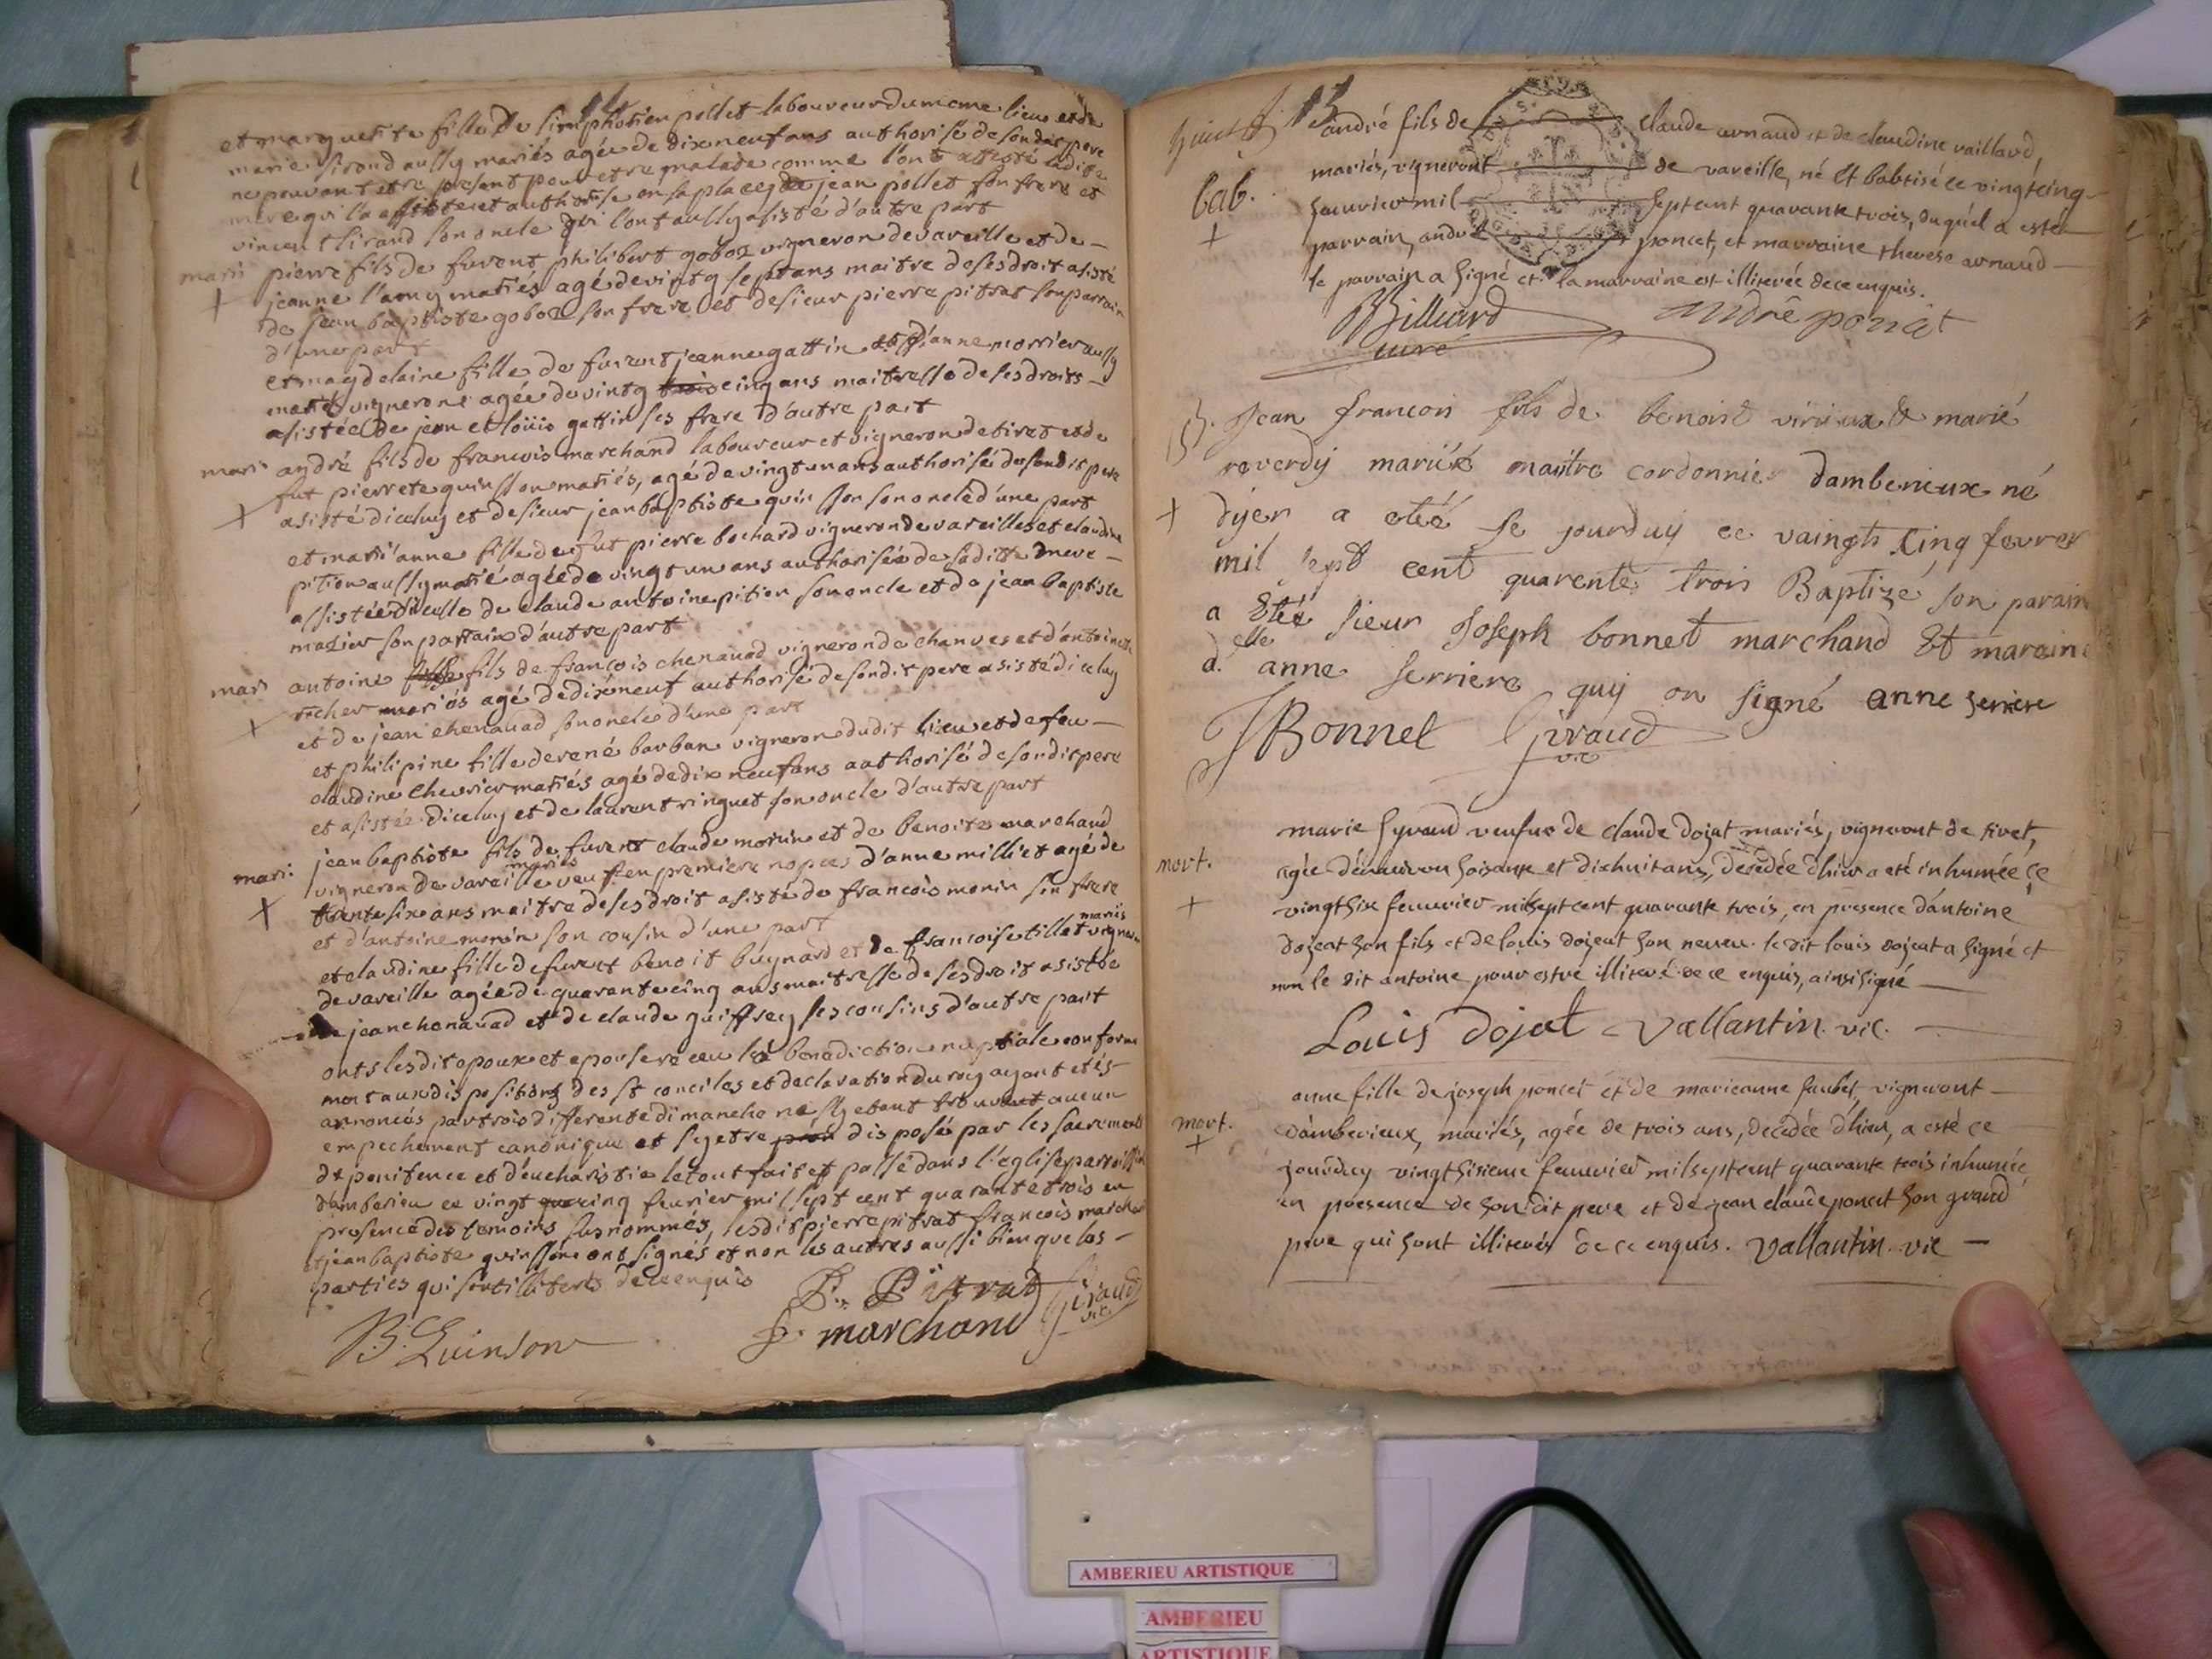 14
et marguerite fille de simphorien pollet laboureur du meme lieu et de
marie sirand aussy mariés agée de dix neuf ans authorisé de son dit pere
ne pouvant etre present pour etre malade comme l'ont attesté ladite
mere qui l'a assistée et authorise en sa place, de jean pollet son frere et
vincent sirand son oncle qui l'ont aussy asisté d'autre part
mari pierre fils de furent philibert goboz vigneron de vareille et de
jeanne l'amy mariés agé de vingt sept ans maitre de ses droit asisté
de jean baptiste goboz son frere et de sieur pierre pitrat son parrain
d'une part
et magdelaine fille de furent jeanne gattin et d'anne morrier aussy
mariés vignerons agée de vintg trois cinq ans maitresse de ses droits
asistée de jean et loüis gattin ses frere d'autre part
mari andré fils de francois marchand laboureur et vigneron de tiret et de
fut pierrete quinson mariés, agé de vingt un ans authorisé de son dit pere
asisté diceluy et de sieur jean baptiste quinson son oncle d'une part
et mari'anne fille de fut pierre bochard vigneron de vareilles et claudine
pition aussy marié agée de vingt un ans authorisée de sa ditte mere
assistée d'icelle de claude antoine pition son oncle et de jean baptiste
mazier son parrain d'autre part
mari antoine fille fils de francois chenavad vigneron de chanves et d'antoinette
richer mariés agé de dix neuf authorisé de son dit pere asisté diceluy
et de jean chenavad son oncle d'une part
et philipine fille de rené barban vigneron dudit lieu et de feu
claudine chevrier mariés agé de dix neuf ans authorisé de son dit pere
et asistée diceluy et de laurent ringuet son oncle d'autre part
mari: jean baptiste fils de furent claude morin et de benoite marchand
mariés
vigneron de vareille veuf en premiere nopces d'anne milliet agé de
trente six ans maitre de ses droit asisté de francois monin son frere
et d'antoine morin son cousin d'une part
mariés
et claudine fille de furent benoit bugnard et de francoise tillet vigneron
de vareille agée de quarante cinq ans maitresse de ses droit asistée
de jean chenavad et de claude guiffrey ses cousins d'autre part
onts lesdit epoux et epouse receu la benediction nuptiale conforme
ment aux dispositions des st conciles et declaration du roy ayant etés
annoncés par trois differente dimanche ne s'y etant trouvent aucun
empechement canonique et s'y etre disposé par les sacrements
de penitence et d'eucharistie le tout fait et passé dans l'eglise parroissial
d'amberieu ce vingt cinq feurier mil sept cent quarante trois en
presence des temoins susnommés, lesdit pierre pitrat francois marchand
et jean baptiste quinson ont signés et non les autres aussi bien que les
parties qui sont illiterés de ce enquis
P. Pitrat
Giraud
vic
B. Quinson
f. marchand
15
bab.
andré fils de claude arnaud et de claudine vaillard,
mariés, vigneront de vareille, né et babtisé ce vingtcinq
feuvrier mil septcent quarante trois, duquel a esté
parrain, andré poncet, et marraine therese arnaud
le parrain a signé et la marraine est illiterée de ce enquis.
Billiard
curé
andré poncet
Jean francois fils de benoist virieux & marié
reverdy mariéé maitre cordonnier damberieux né
dyer a etéé se jourduy ce vaingts cinq fevrer
mil sept cent quarente trois Baptizé son parain
a Etéé sieur Joseph bonnet marchand Et maraine
delle anne serriere quy on signé anne serriere
JBonnet
Giraud
vic
mort.
marie syraud veufue de claude dojat mariés, vigneront de tiret,
agée dénuiron soisante et dixhuit ans, decédée d'hier a eté inhumée ce
vingtsix feuurier milseptcent quarante trois, en presence d'antoine
dojeat son fils et de louis dojeat son neveu. le dit louis dojeat a signé et
non le dit antoine pour estre illiteré de ce enquis, ainsi signé
Louis dojat
Vallantin. vic.
mort.
anne fille de joseph poncet et de marieanne jaubet, vigneront
d'amberieux, mariés, agée de trois ans, decédée d'hier, a esté ce
jourduy vingtsisieme feuurier milseptcent quarante trois inhumée
en presence de son dit pere et de jean claude poncet son grand
pere qui sont illiterés de ce enquis. Vallantin. vic
AMBERIEU ARTISTIQUE
AMBERIEU
ARTISTIQUE